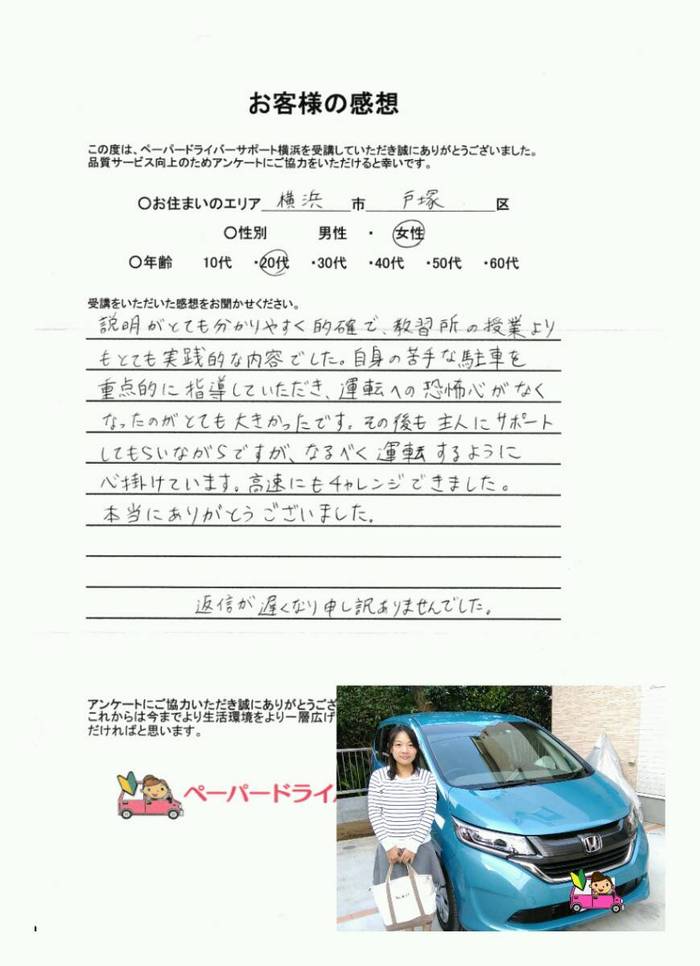 お客様の感想
この度は、ペーパードライバーサポート横浜を受講していただき誠にありがとうございました。
品質サービス向上のためアンケートにご協力をいただけると幸いです。
○お住まいのエリア 横浜 市 戸塚 区
○性別 男性 ・ 女性
○年齢 10代 ・20代 ・30代 ・40代 ・50代 ・60代
受講をいただいた感想をお聞かせください。
説明がとても分かりやすく的確で、教習所の授業より
もとても実践的な内容でした。自身の苦手な駐車を
重点的に指導していただき、運転への恐怖心がなく
なったのがとても大きかったです。その後も主人にサポート
してもらいながらですが、なるべく運転するように
心掛けています。高速にもチャレンジできました。
本当にありがとうございました。
返信が遅くなり申し訳ありませんでした。
アンケートにご協力いただき誠にありがとうござ
これからは今までより生活環境をより一層広げ
だければと思います。
ペーパードライ